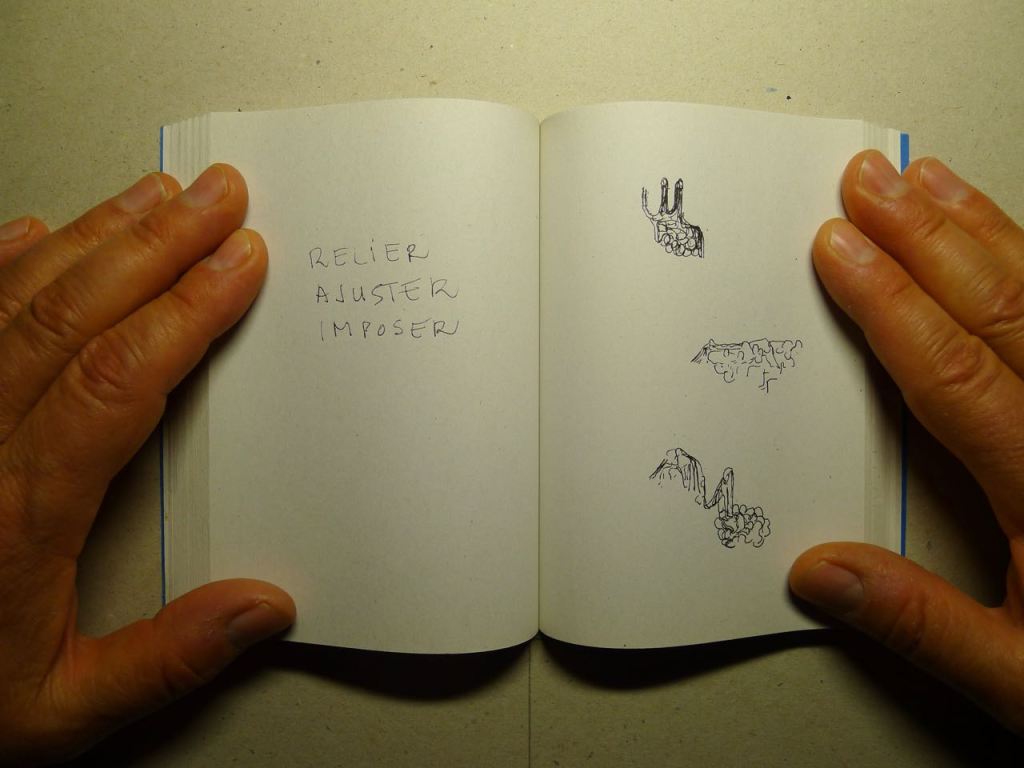 RELIER
AJUSTER
IMPOSER